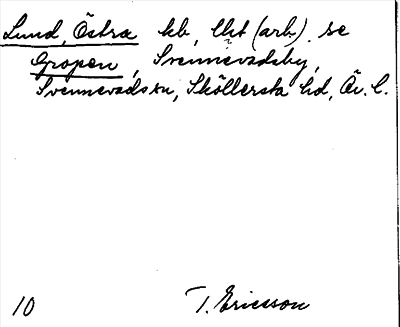 Lund, Östra hb, lht (arb). se
Gropen, Svennevadsby,
Svennevads sn, Sköllersta hd, Ör. l.
10 T. Ericsson